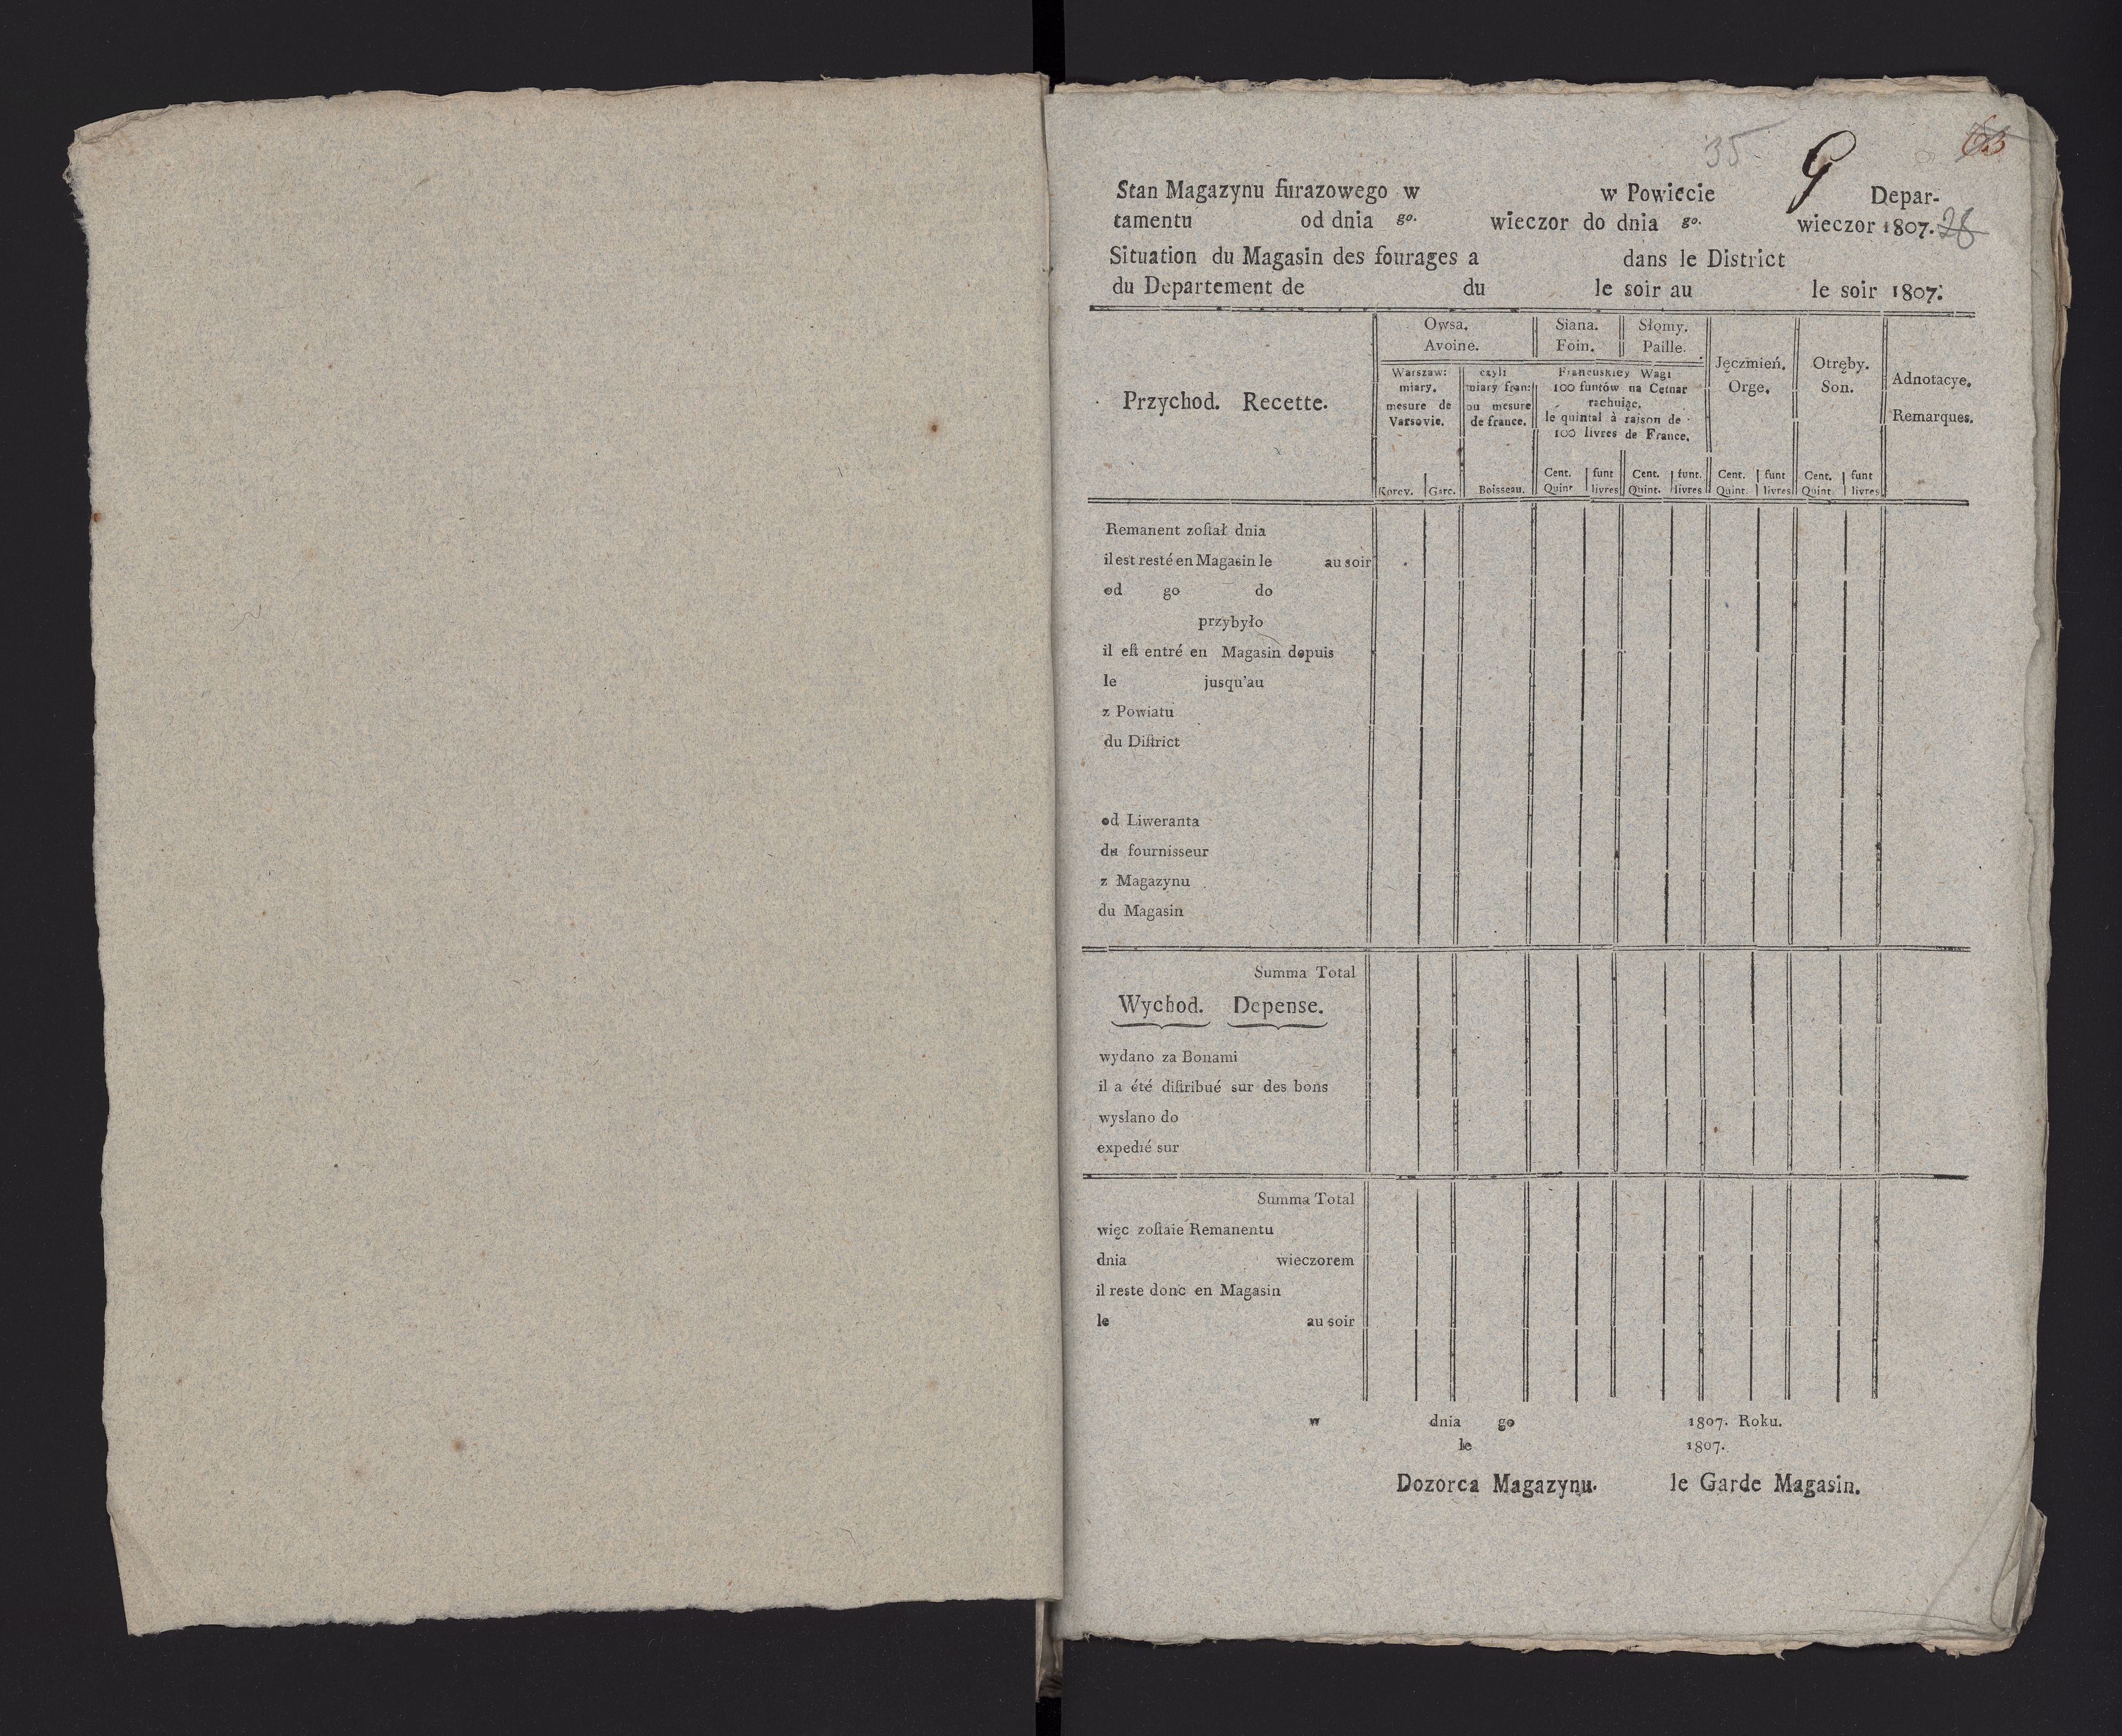 35
G
Stan Magazynu furazowego w w Powiecie Depar-
tamentu od dnia go. wieczor do dnia go. wieczor 1807. 28
Situation du Magasin des fourages a dans le District
du Departement de du le soir au le soir 1807.
Przychod. Recette.
Owsa. Siana. Słomy.
Avoine. Foin. Paille.
Warszaw: czyli Francuskiey Wagi
miary. miary fran: 100 funtów na Cetnar
mesure de ou mesure rachuiąc.
Varsovie. de france. le quintal à raison de
100 livres de France.
Jęczmień. Otręby.
Orge. Son.
Adnotacye.
Remarques.
Cent. funt Cent. funt. Cent. funt Cent. funt
Korcy. Garc. Boisseau. Quint livres Quint. livres Quint. livres Quint. livres
Remanent zoſtał dnia
il est resté en Magasin le au soir
od go do
przybyło
il eſt entré en Magasin depuis
le jusqu'au
z Powiatu
du Diſtrict
od Liweranta
du fournisseur
z Magazynu
du Magasin
Summa Total
Wychod. Depense.
wydano za Bonami
il a été diſtribué sur des bons
wysłano do
expedié sur
Summa Total
więc zoſtaie Remanentu
dnia wieczorem
il reste donc en Magasin
le au soir
w dnia go 1807. Roku.
le 1807.
Dozorca Magazynu. le Garde Magasin.